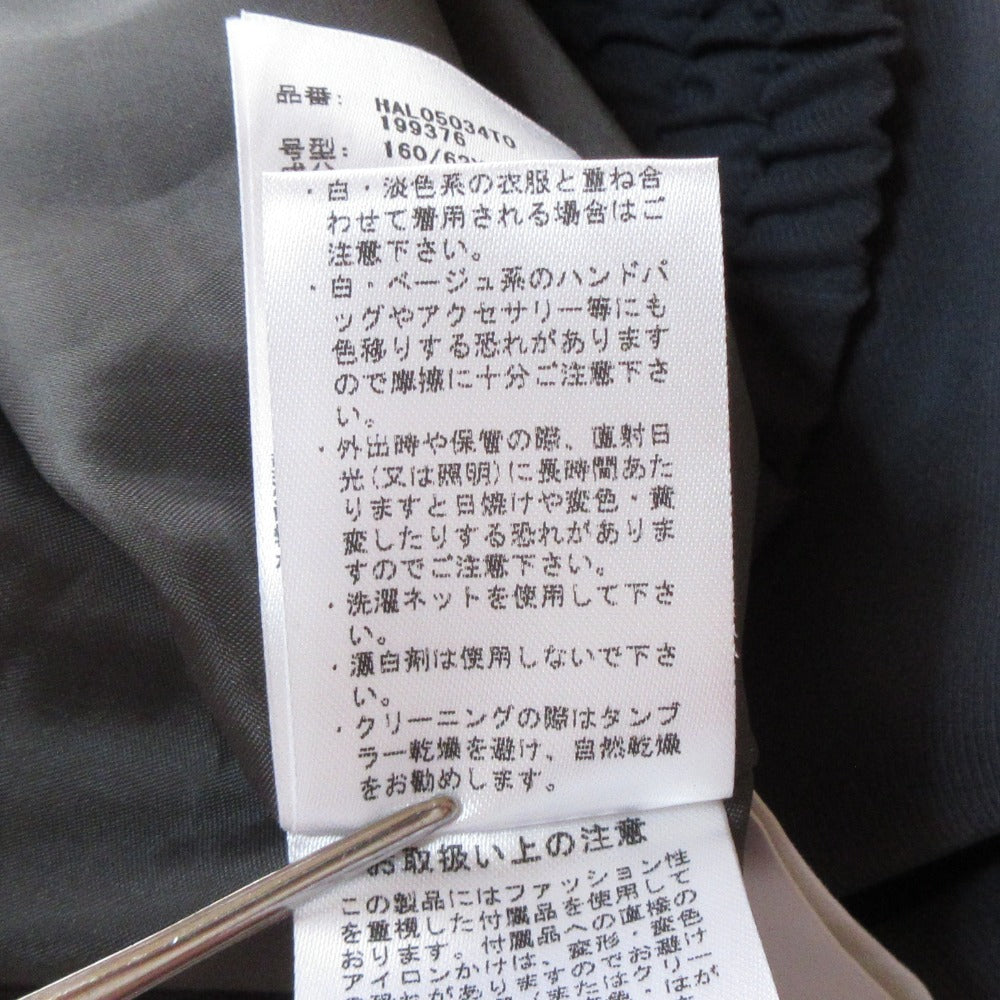 品番: HAL05034T0
199376
号型: 160/62
・白・淡色系の衣服と重ね合
わせて着用される場合はご
注意下さい。
・白・ベージュ系のハンドバ
ッグやアクセサリー等にも
色移りする恐れがあります
ので摩擦に十分ご注意下さ
い。
・外出時や保管の際、直射日
光(又は照明)に長時間あた
りますと日焼けや変色・黄
変したりする恐れがありま
すのでご注意下さい。
・洗濯ネットを使用して下さ
い。
・漂白剤は使用しないで下さ
い。
・クリーニングの際はタンブ
ラー乾燥を避け、自然乾燥
をお勧めします。
お取扱い上の注意
この製品にはファッション性
を重視した付属品を使用して
おります。付属品への直接の
アイロンがけは、変形・変色